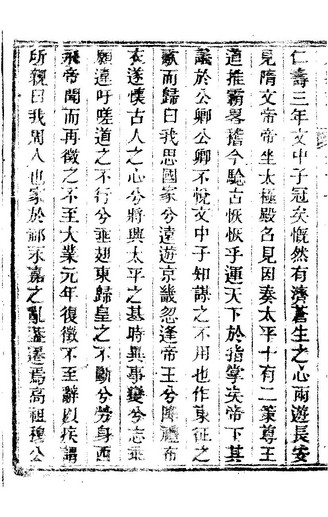 仁壽三年文中子冠矣慨然有濟蒼生之心西遊長安
見隋文帝帝坐太極殿名見因奏太平十有二策尊王
道推霸畧稽今驗古恢恢乎運天下於指掌矣帝下其
議於公卿公卿不悅文中子知謀之不用也作東征之
歌而歸曰我思國家兮遠遊京畿忽逢帝王兮降禮布
衣遂懷古人之心兮將興太平之基時異事變兮志乖
願違吁嗟道之不行兮垂翅東歸皇之不斷兮勞身西
飛帝聞而再徵之不至大業元年復徵不至辭以疾謂
所親曰我周人也家於祁永嘉之亂葢遷焉高祖穆公